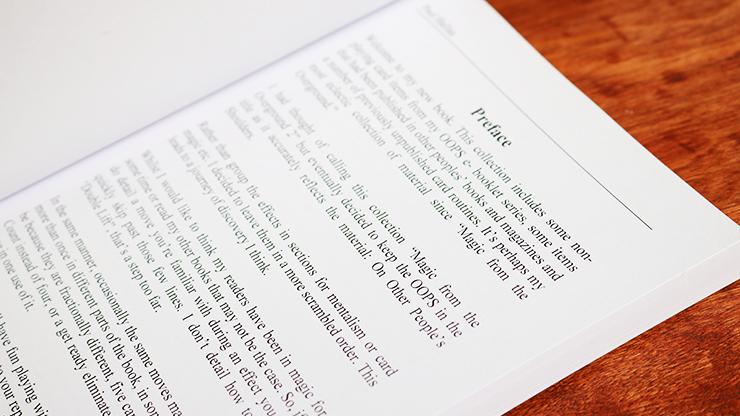 Paul Hallas
Preface
Welcome to my new book. This collection includes some non-
playing card items from my OOPS e- booklet series, some items
that had been published in other peoples' books and magazines and
a number of previously unpublished card routines. It's perhaps my
most eclectic collection of material since "Magic from the
Overground."
I had thought of calling this collection "Magic from the
Overground 2" but eventually decided to keep the OOPS in the
title as it accurately reflects the material: On Other People's
Shoulders.
Rather than group the effects in sections for mentalism or card
magic etc. I decided to leave them in a more scrambled order. This
leads to a journey of discovery I think.
Whilst I would like to think my readers have been in magic for
some time or read my other books that may not be the case. So, i
do detail a move you're familiar with during an effect you
quickly skip past those few lines. I don't detail how to
'Double Lift', that's a step too far.
In the same manner, occasionally the same moves ma
more than once in different parts of the book, in som
be because they are fractionally different, five ca
Count instead of four, or a get ready eliminate
in one use of it.
have fun playing wi
to your rep